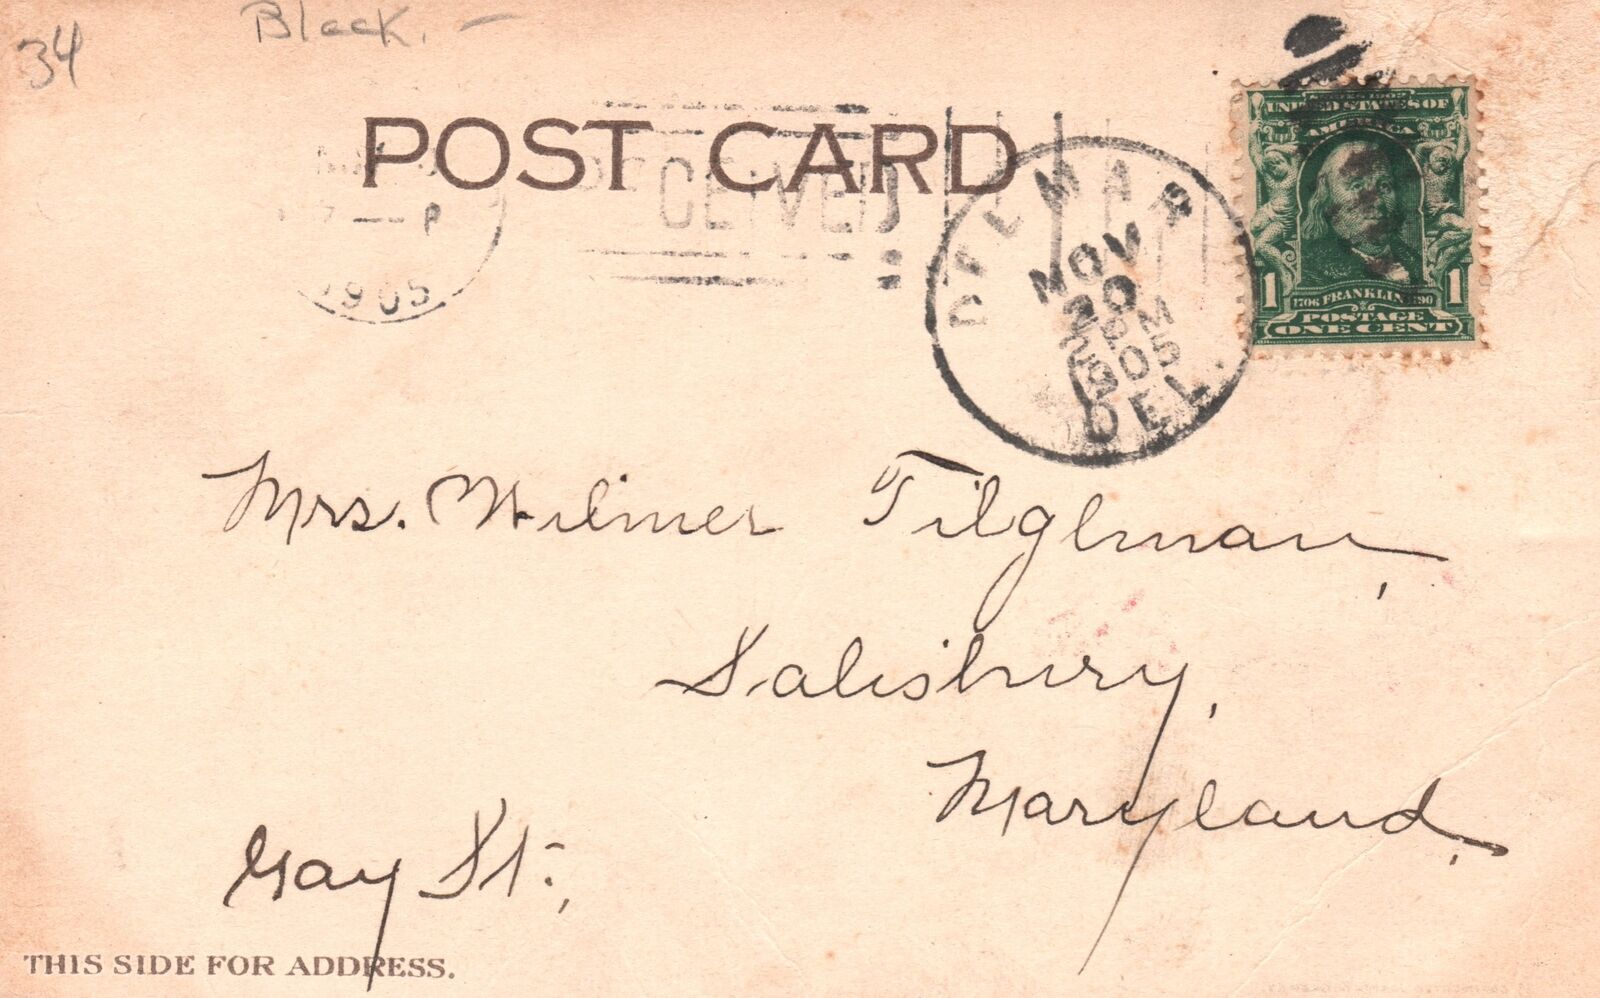 34
Black. —
POST CARD
RECEIVED
7 — P
1905
DELMAR
NOV
20
PM
1905
DEL.
UNITED STATES OF
AMERICA
1706 FRANKLIN 1790
1 1
POSTAGE
ONE CENT
Mrs. Wilmer Tilghman,
Salisbury,
Maryland.
Gay St.,
THIS SIDE FOR ADDRESS.